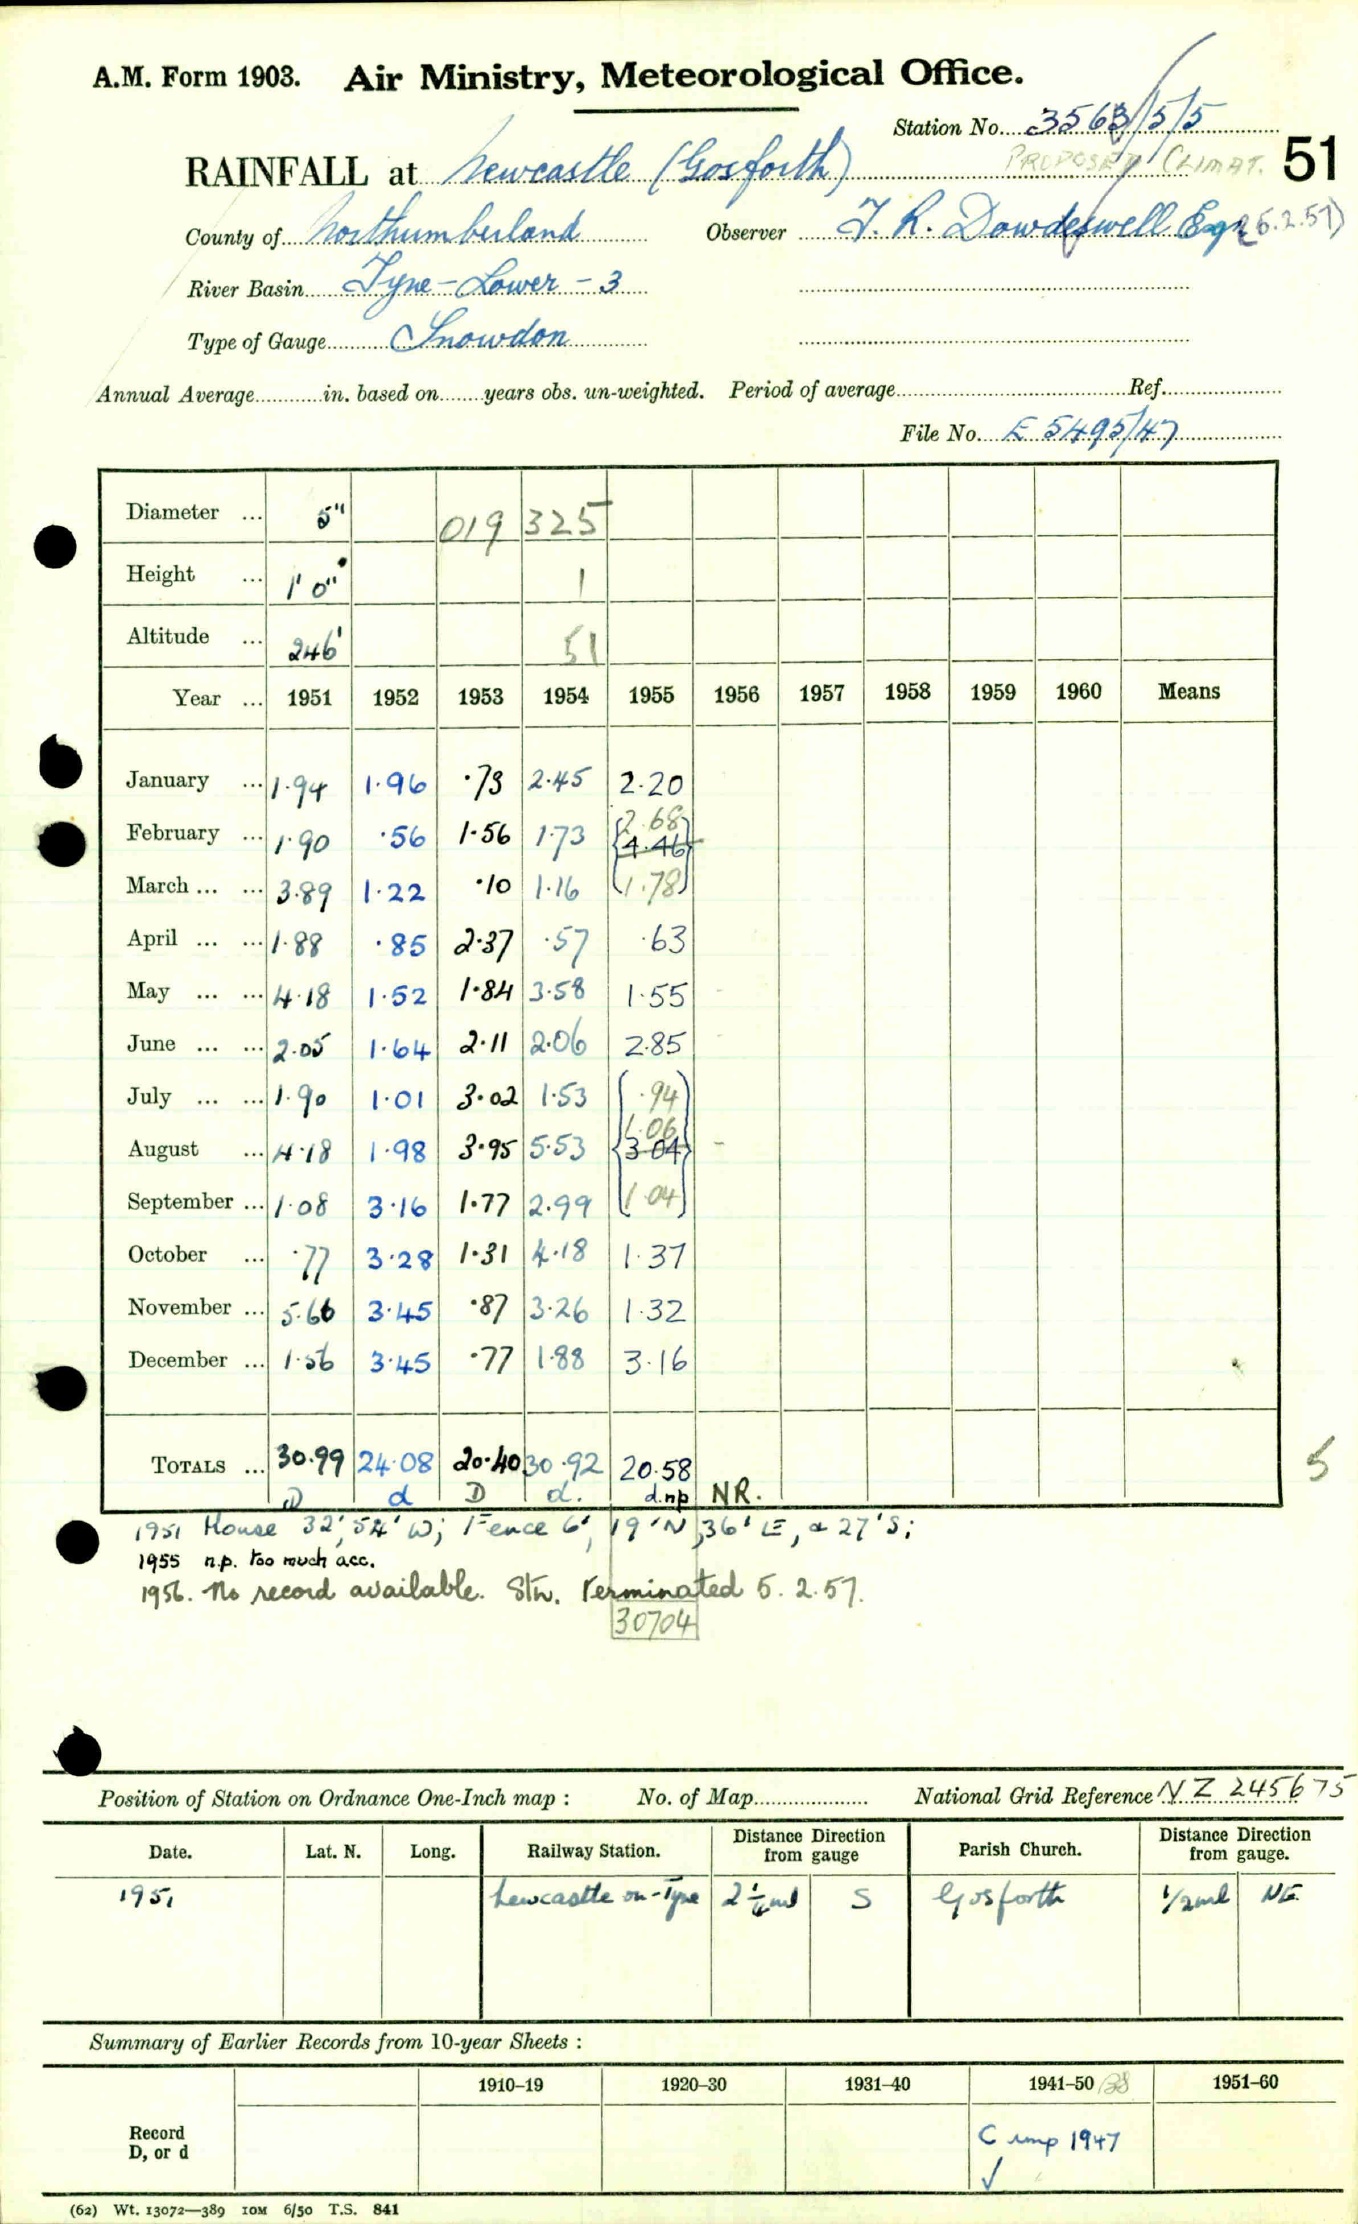 A.M. Form 1903. Air Ministry, Meteorological Office.
Station No. 3563/5/5
PROPOSED CLIMAT. 51
RAINFALL at Newcastle (Gosforth)
County of Northumberland Observer J. R. Dowdeswell Esq (5.2.57)
River Basin Tyne - Lower - 3
Type of Gauge Snowdon
Annual Average in. based on years obs. un-weighted. Period of average Ref.
File No. E 5495/47
Diameter ... 5" 019 325
Height ... 1' 0" 1
Altitude ... 246' 51
Year ... 1951 1952 1953 1954 1955 1956 1957 1958 1959 1960 Means
January ... 1.94 1.96 .73 2.45 2.20
February ... 1.90 .56 1.56 1.73 2.68 4.46
March ... ... 3.89 1.22 .10 1.16 1.78
April ... ... 1.88 .85 2.37 .57 .63
May ... ... 4.18 1.52 1.84 3.58 1.55
June ... ... 2.05 1.64 2.11 2.06 2.85
July ... ... 1.90 1.01 3.02 1.53 .94
August ... 4.18 1.98 3.95 5.53 1.06 3.04
September ... 1.08 3.16 1.77 2.99 1.04
October ... .77 3.28 1.31 4.18 1.37
November ... 5.66 3.45 .87 3.26 1.32
December ... 1.56 3.45 .77 1.88 3.16
TOTALS ... 30.99 24.08 20.40 30.92 20.58
D d D d. d.np NR.
5
1951 House 32', 54' W; Fence 6', 19' N, 36' E, & 27' S;
1955 n.p. too much acc.
1956. No record available. Stn. Terminated 5.2.57.
30704
Position of Station on Ordnance One-Inch map : No. of Map National Grid Reference NZ 245675
Date. Lat. N. Long. Railway Station. Distance Direction from gauge Parish Church. Distance Direction from gauge.
1951 Newcastle on-Tyne 2 1/4 ml S Gosforth 1/2 ml NE
Summary of Earlier Records from 10-year Sheets :
1910–19 1920–30 1931–40 1941–50 1951–60
Record D, or d C imp 1947 ✓
(62) Wt. 13072—389 10M 6/50 T.S. 841